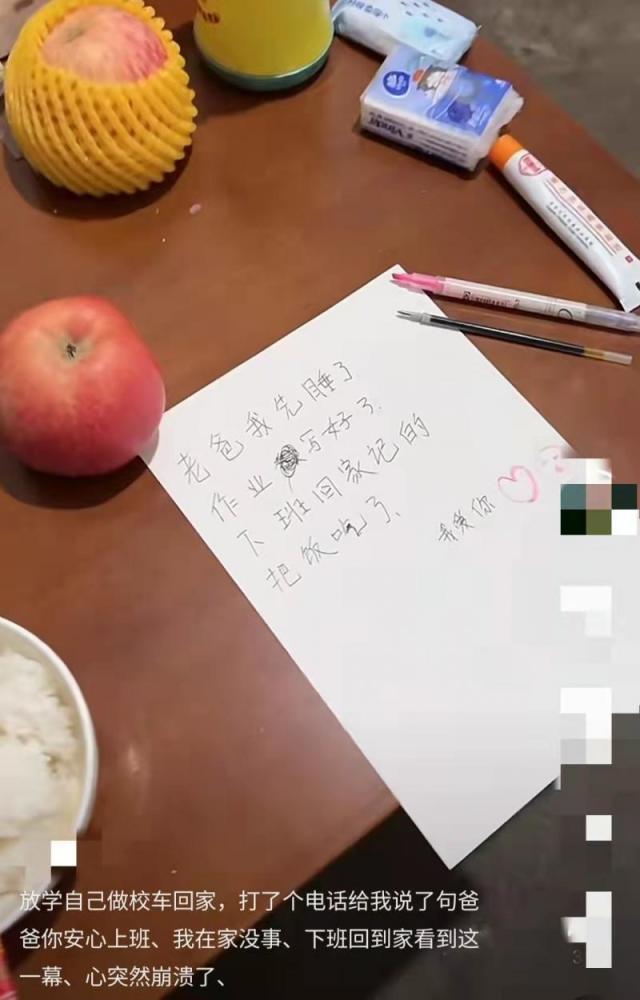 老爸我先睡了
作业写好了.
下班回家记的
把饭吃了、
我爱你
Vinda
放学自己做校车回家，打了个电话给我说了句爸
爸你安心上班、我在家没事、下班回到家看到这
一幕、心突然崩溃了、